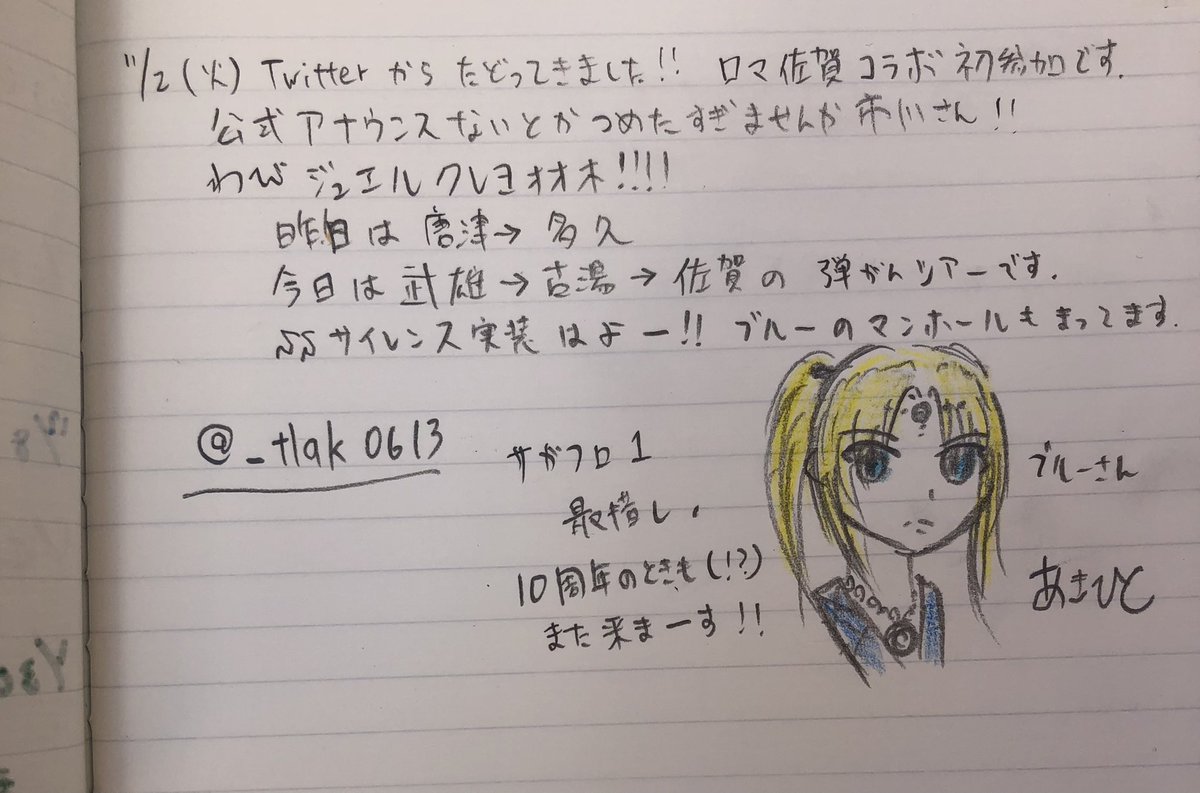 11/2(火) Twitterから たどってきました!! ロマ佐賀コラボ初参加です.
公式アナウンスないとかつめたすぎませんか市川さん!!
わび ジュエル クレヨオオオ!!!!
昨日は 唐津→ 多久
今日は 武雄→古湯→佐賀の 弾がんツアーです.
SSサイレンス実装 はよー!! ブルーのマンホールもまってます.
@_tlak0613
サガフロ1
最推し.
10周年のときも(!?)
また来まーす!!
ブルーさん
あきひと
12/8
1/30